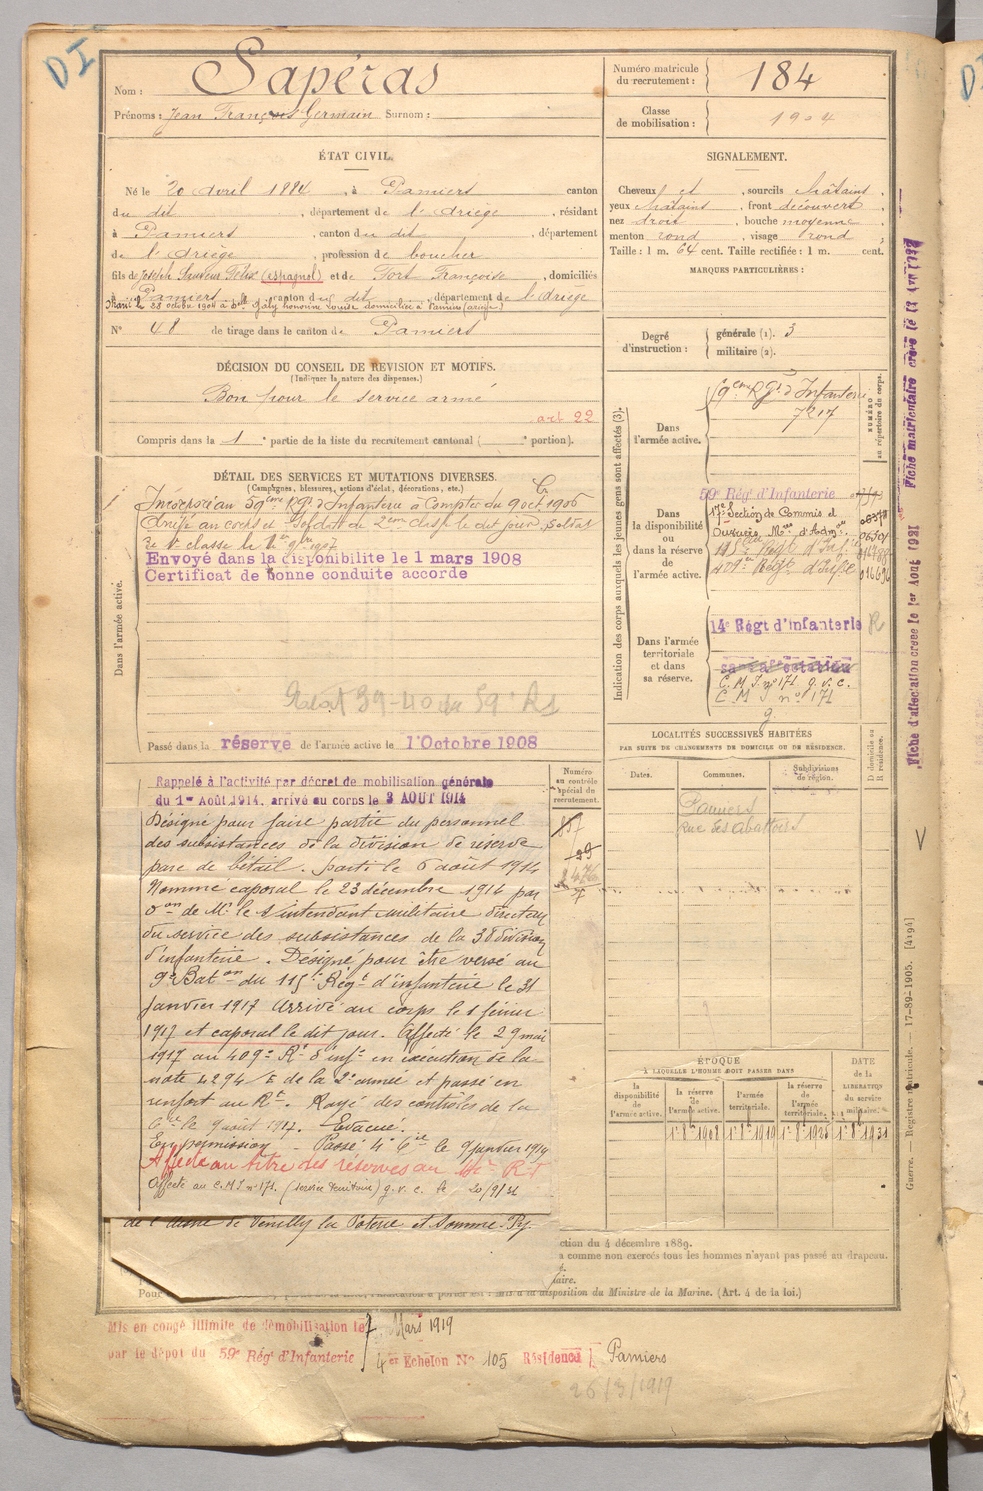 DI
Nom : Sapéras
Prénoms : Jean François Germain Surnom :
Numéro matricule du recrutement : 184
Classe de mobilisation : 1904
ÉTAT CIVIL.
Né le 20 avril 1884, à Pamiers canton
du dit, département de l'ariège, résidant
à Pamiers, canton du dit, département
de l'ariège, profession de boucher
fils de Joseph Sauveur Félix (espagnol) et de Fort Françoise, domiciliés
à Pamiers, canton du dit, département de l'ariège
Marié le 28 octobre 1908 à Galy honorine domiciliée à Pamiers (ariège)
N° 48 de tirage dans le canton de Pamiers
SIGNALEMENT.
Cheveux et, sourcils châtains,
yeux châtains, front découvert,
nez droit, bouche moyenne
menton rond, visage rond,
Taille : 1 m. 64 cent. Taille rectifiée : 1 m. cent.
MARQUES PARTICULIÈRES :
Degré d'instruction : générale (1). 3
militaire (2).
DÉCISION DU CONSEIL DE REVISION ET MOTIFS.
(Indiquer la nature des dispenses.)
Bon pour le service armé
art 22
Compris dans la 1e partie de la liste du recrutement cantonal ( e portion).
DÉTAIL DES SERVICES ET MUTATIONS DIVERSES.
(Campagnes, blessures, actions d'éclat, décorations, etc.)
Dans l'armée active.
Incorporé au 59ème Rgt d'Infanterie à Compter du 9 oct. 1906
Arrivé au corps et Soldat de 2ème classe le dit jour. Soldat
de 1e classe le 1907
Envoyé dans la disponibilité le 1 mars 1908
Certificat de bonne conduite accordé
39-40 du 59e
Passé dans la réserve de l'armée active le 1 Octobre 1908
Indication des corps auxquels les jeunes gens sont affectés (3).
NUMÉRO au répertoire du corps.
Dans l'armée active.
59ème Rgt d'Infanterie
7217
Dans la disponibilité ou dans la réserve de l'armée active.
59e Régt d'Infanterie
17e Section de Commis et
Ouvriers Mres d'Admon
115ème Régt d'Infie
409e Régt d'Infie
016696
Dans l'armée territoriale et dans sa réserve.
14e Régt d'Infanterie R
sans affectation
C. M. I. n° 171 g. v. c.
C M I n° 171
g
LOCALITÉS SUCCESSIVES HABITÉES
PAR SUITE DE CHANGEMENTS DE DOMICILE OU DE RÉSIDENCE.
Dates. Communes. Subdivisions de région. D domicile ou R résidence.
Pamiers
Rue des abattoirs
Numéro au contrôle spécial du recrutement.
857
29
Rappelé à l'activité par décret de mobilisation générale
du 1er Août 1914. arrivé au corps le 3 AOUT 1914
Désigné pour faire partie du personnel
des subsistances de la division de réserve
parc de bétail. Parti le 6 août 1914
Nommé caporal le 23 décembre 1914 par
on de Mr le S/intendant militaire directeur
du service des subsistances de la 38 division
d'infanterie. Désigné pour être versé au
9e Baton du 115e Régt d'infanterie le 31
Janvier 1917 Arrivé au corps le 1 février
1917 et caporal le dit jour. Affecté le 29 mai
1917 au 409e Rt d'infie en exécution de la
note 4294/E de la 2e armée et passé en
renfort au Rt. Rayé des contrôles de la
Cie le 9 août 1917. Evacué.
En permission - Passé 4e Cie le 9 janvier 1919
Affecté au titre des réserves au 14e R.I
Affecté au C.M.I n° 171. (service territorial) g. v. c. le 20/9/31
de l'Aisne le Venilly la Poterie et Somme-Py.
ÉPOQUE
À LAQUELLE L'HOMME DOIT PASSER DANS
la disponibilité de l'armée active.
la réserve de l'armée active.
l'armée territoriale.
la réserve de l'armée territoriale.
DATE de la LIBÉRATION du service militaire.
1 8bre 1908
1 8bre 1931
ction du 4 décembre 1889.
a comme non exercés tous les hommes n'ayant pas passé au drapeau.
aire.
Pour
disposition du Ministre de la Marine. (Art. 4 de la loi.)
Mis en congé illimité de démobilisation le 7 Mars 1919
par le dépôt du 59e Régt d'Infanterie 4er Echelon N° 105 Résidence Pamiers
26/3/1919
Fiche d'affectation créée le 1er Août 1921
Guerre. Registre matricule. 17-89-1905. [4194]
DI